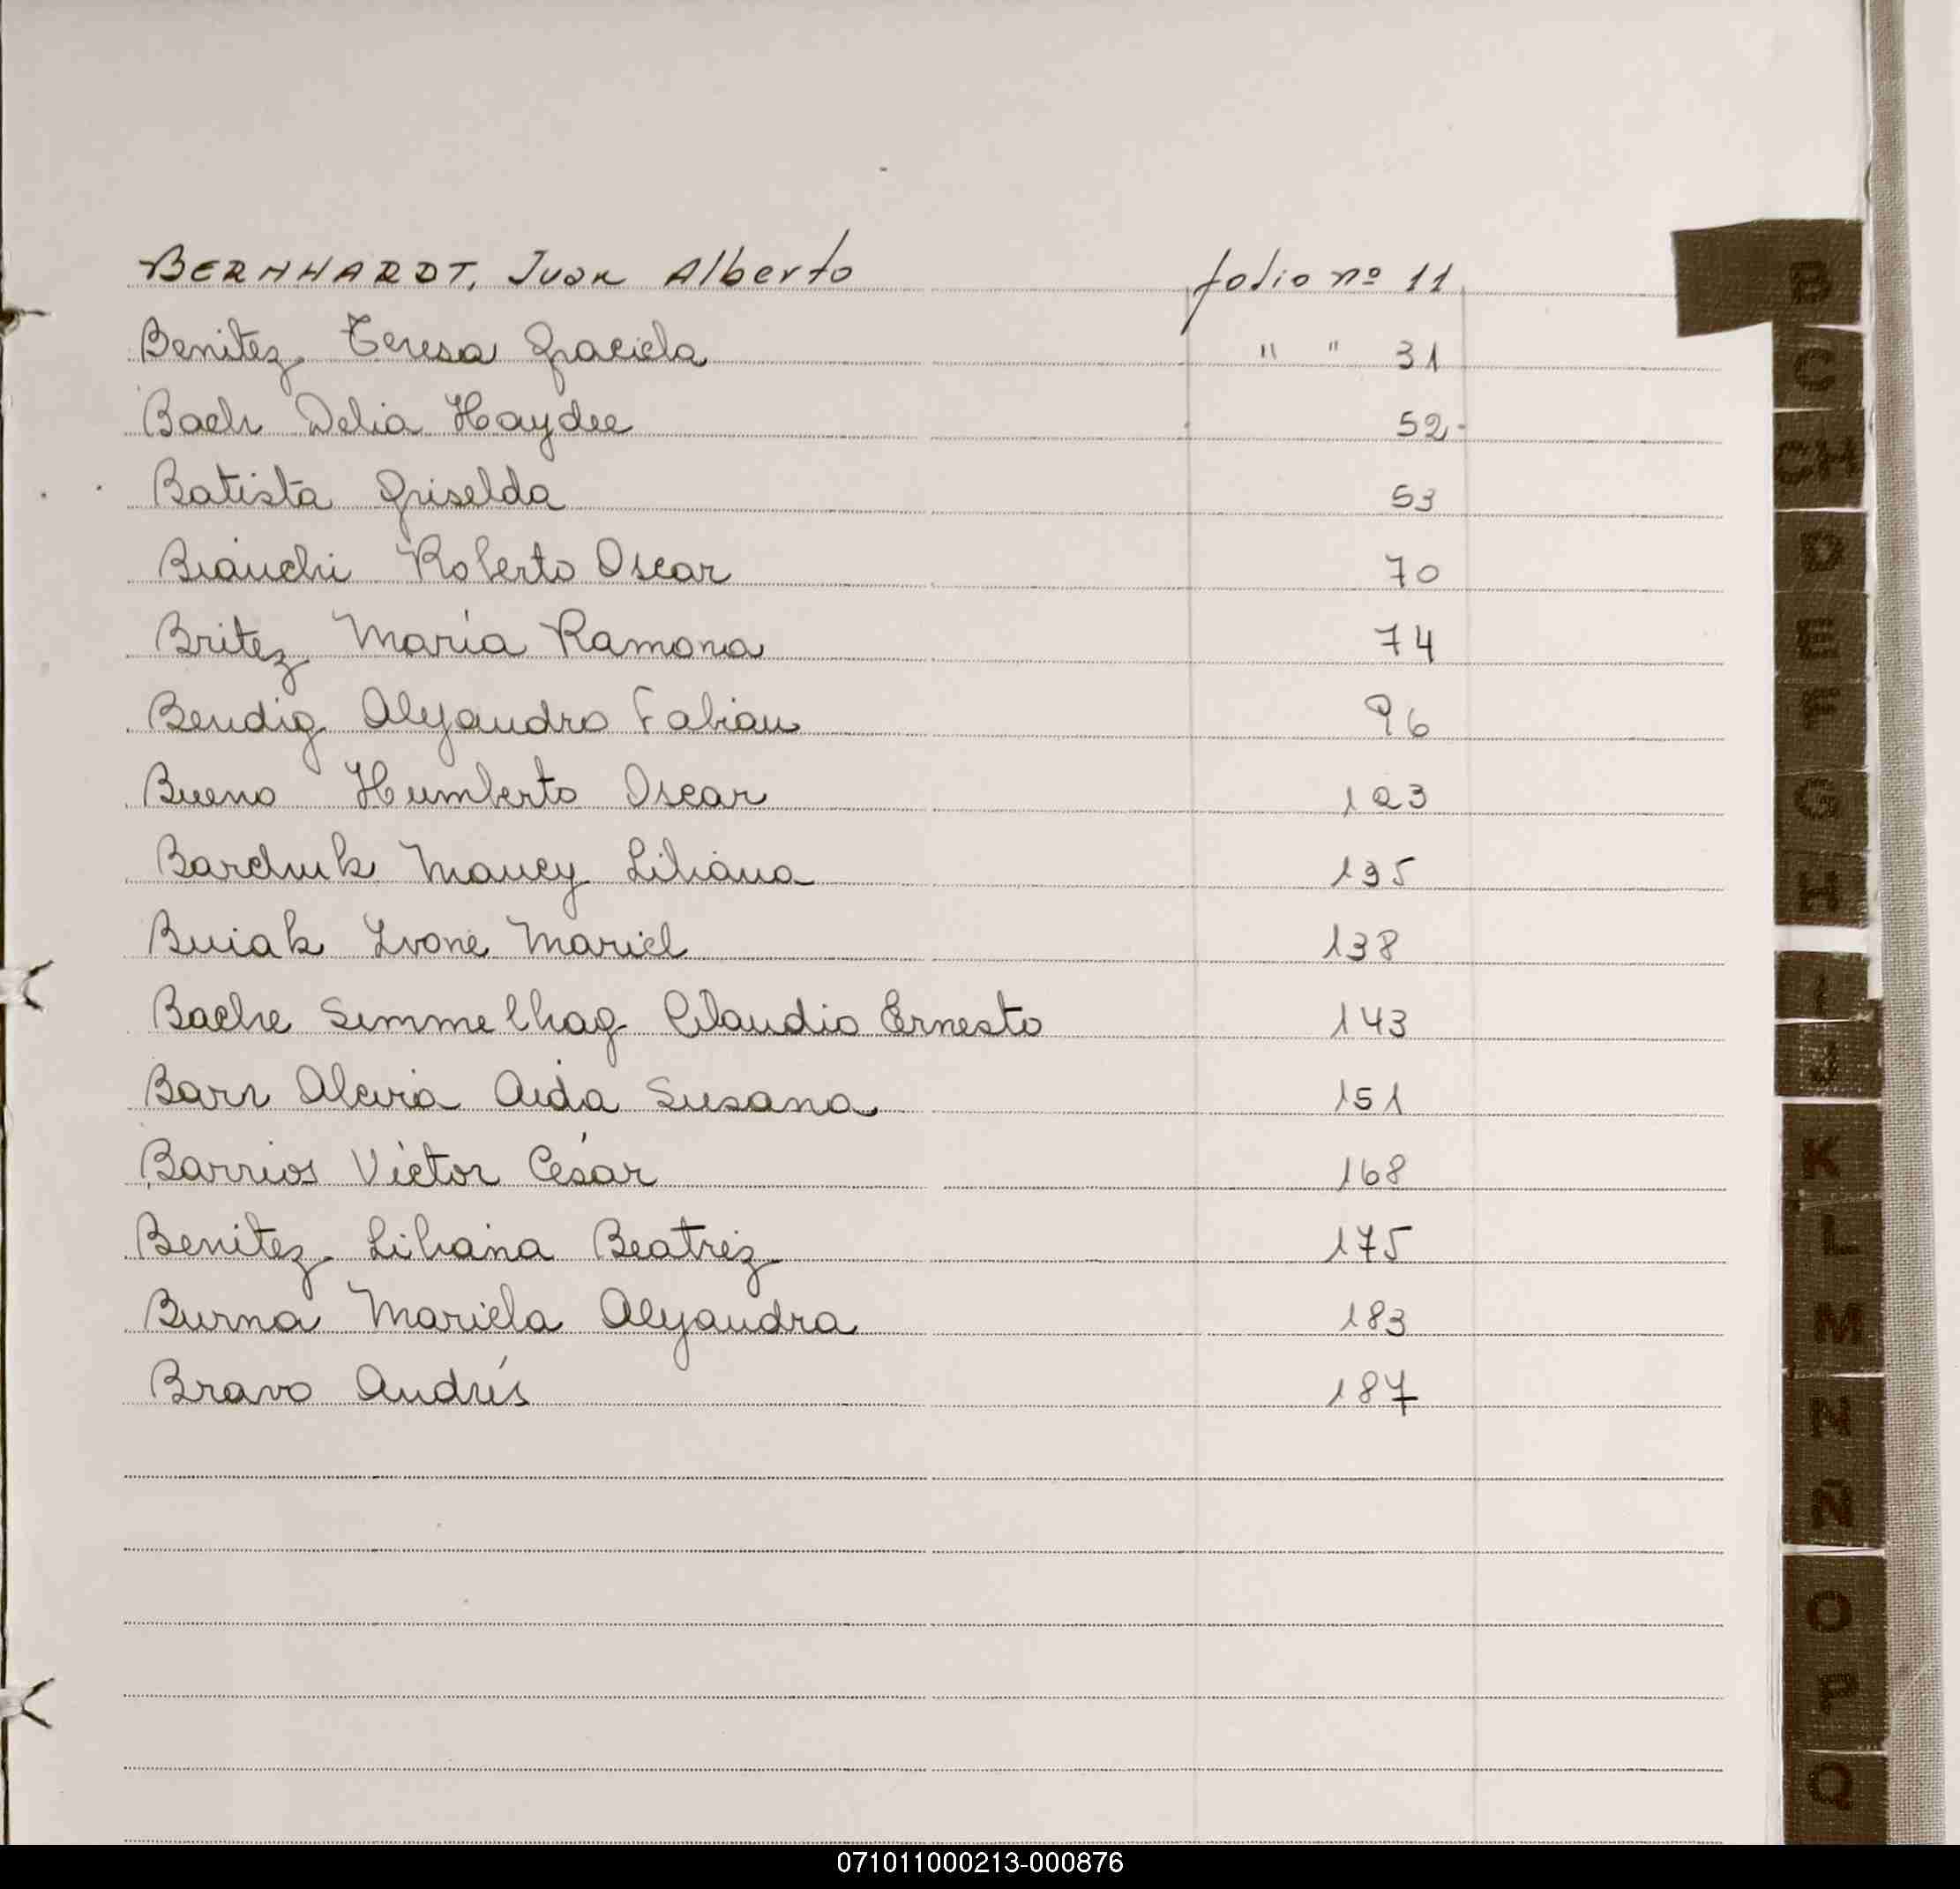 BERNHARDT, Juan Alberto folio nº 11
Benitez Teresa Graciela " " 31
Bach Delia Haydee 52
Batista Griselda 53
Bianchi Roberto Oscar 70
Britez María Ramona 74
Bendig Alejandro Fabian 96
Bueno Humberto Oscar 123
Liliana 135
Buiak Ivone Mariel 138
Bache Simmelhag Claudio Ernesto 143
Aida Susana 151
Barrios Víctor César 168
Benitez Liliana Beatriz 175
Burna Mariela Alejandra 183
Bravo Andrés 187
B
C
CH
D
E
F
G
H
I
J
K
L
M
N
Ñ
O
P
Q
071011000213-000876